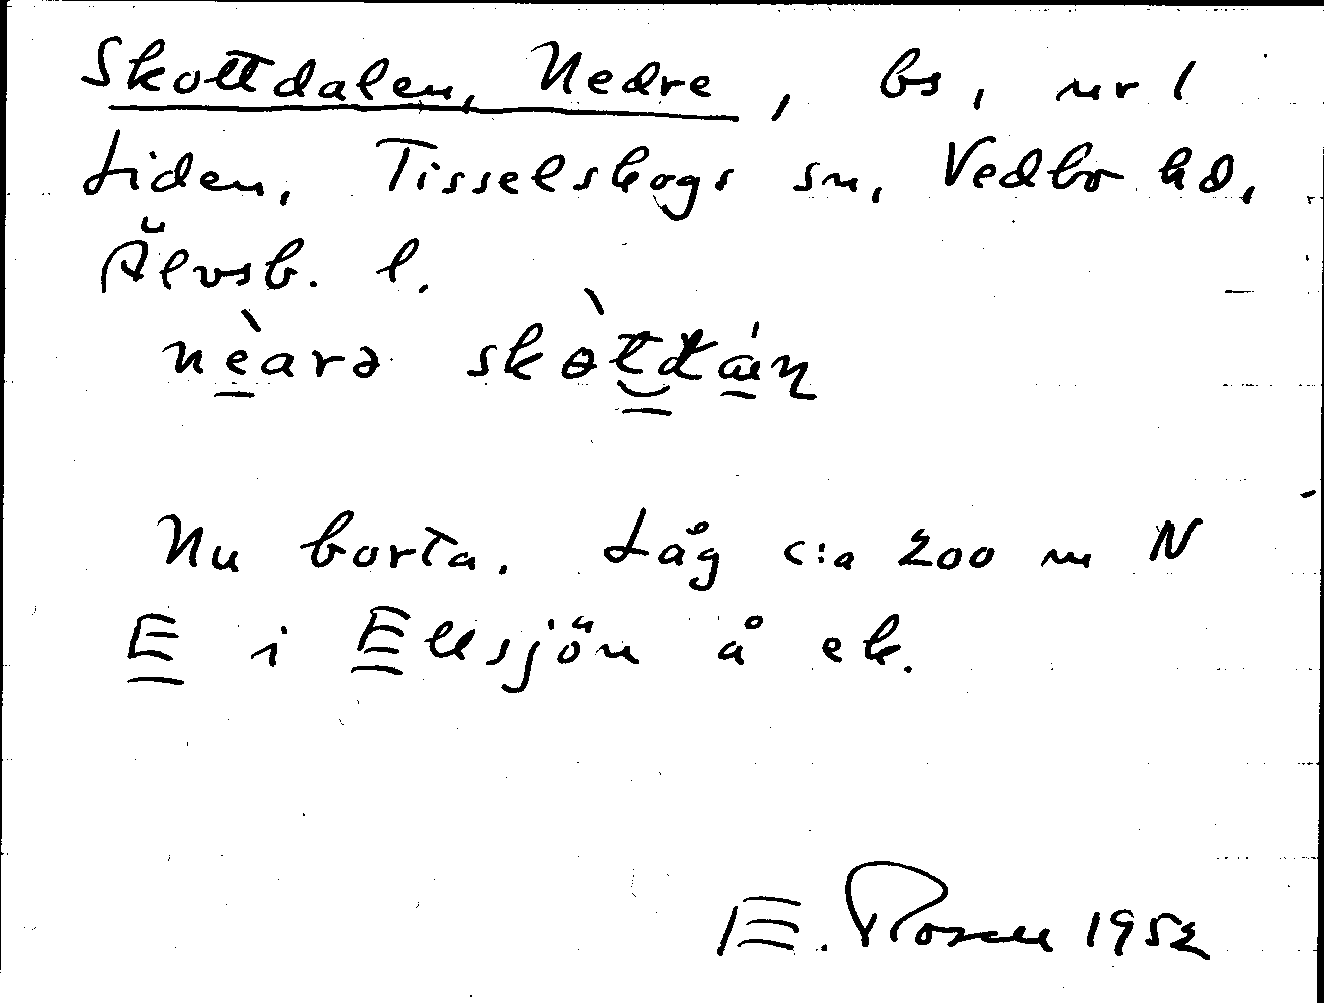 Skottdalen, Nedre, bs, nr 1
Liden, Tisselskogs sn, Vedbo hd,
Älvsb. l.
Nu borta. Låg c:a 200 m N
E i Ellsjön å ek.
E. Rosell 1952